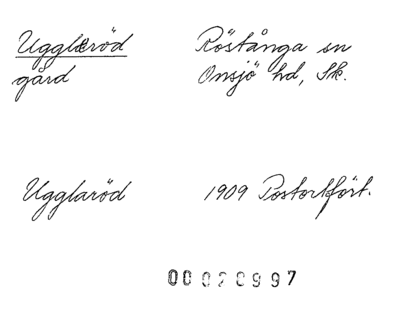 Uggleröd Röstånga sn
gård Onsjö hd, Sk.
Ugglaröd 1909 Postortsfört.
00020997